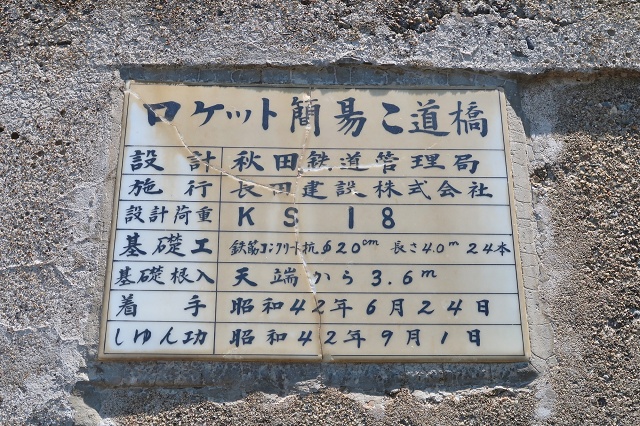 ロケット簡易こ道橋
設計 秋田鉄道管理局
施行 長田建設株式会社
設計荷重 KS 18
基礎工 鉄筋コンクリート杭 φ20cm 長さ4.0m 24本
基礎根入 天端から3.6m
着手 昭和42年6月24日
しゅん功 昭和42年9月1日